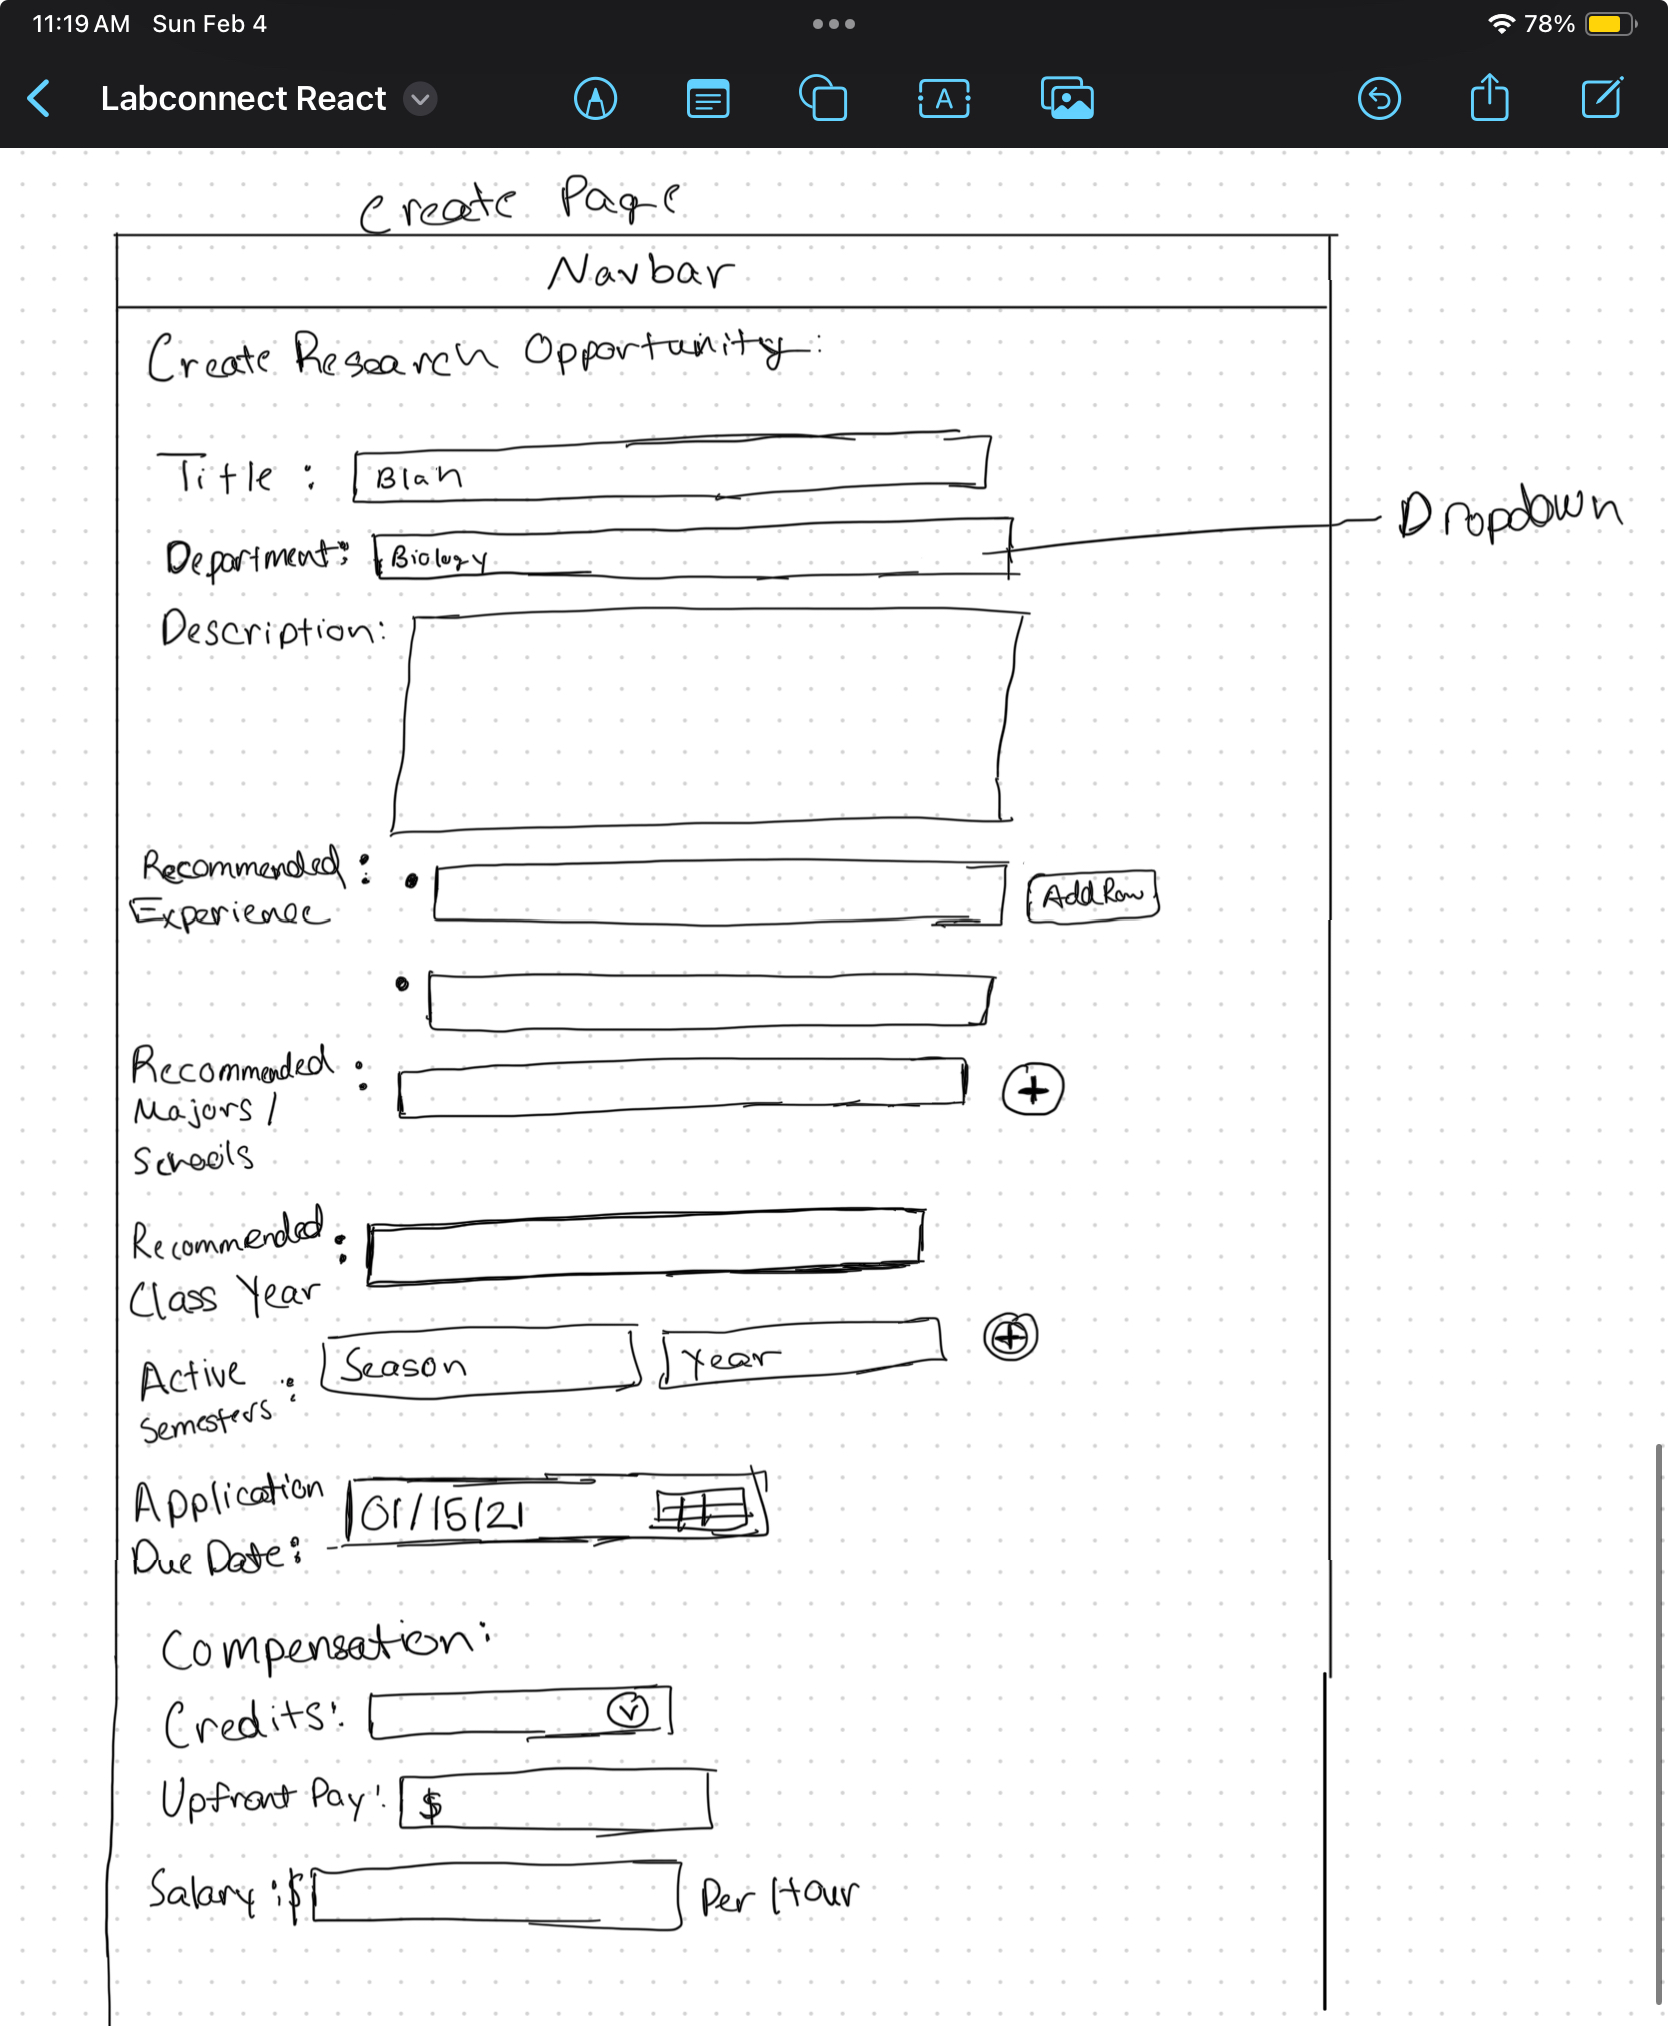 11:19 AM Sun Feb 4
78%
Labconnect React
A
Create Page
Navbar
Create Research Opportunity:
Title : Blah
Department: Biology
Dropdown
Description:
Recommended :
Experience
Add Row
Recommended :
Majors /
Schools
+
Recommended :
Class Year
Active
Semesters :
Season
Year
+
Application
Due Date:
01/15/21
Compensation:
Credits:
Upfront Pay: $
Salary : $ Per Hour